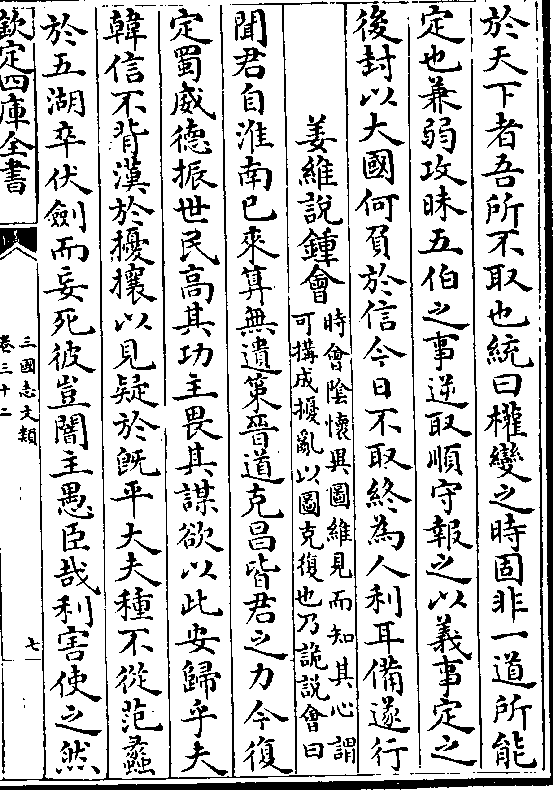 於天下者吾所不取也統曰權變之時固非一道所能
定也兼弱攻昧五伯之事逆取順守報之以義事定之
後封以大國何負於信今日不取終為人利耳備遂行
姜維說鍾會時會陰懷異圖維見而知其心謂
可搆成擾亂以圖克復也乃詭說會曰
聞君自淮南已來算無遺策晉道克昌皆君之力今復
定蜀威德振世民高其功主畏其謀欲以此安歸乎夫
韓信不背漢於擾攘以見疑於既平大夫種不從范蠡
於五湖卒伏劍而妄死彼豈闇主愚臣哉利害使之然
欽定四庫全書
三國志文類
卷三十二
七